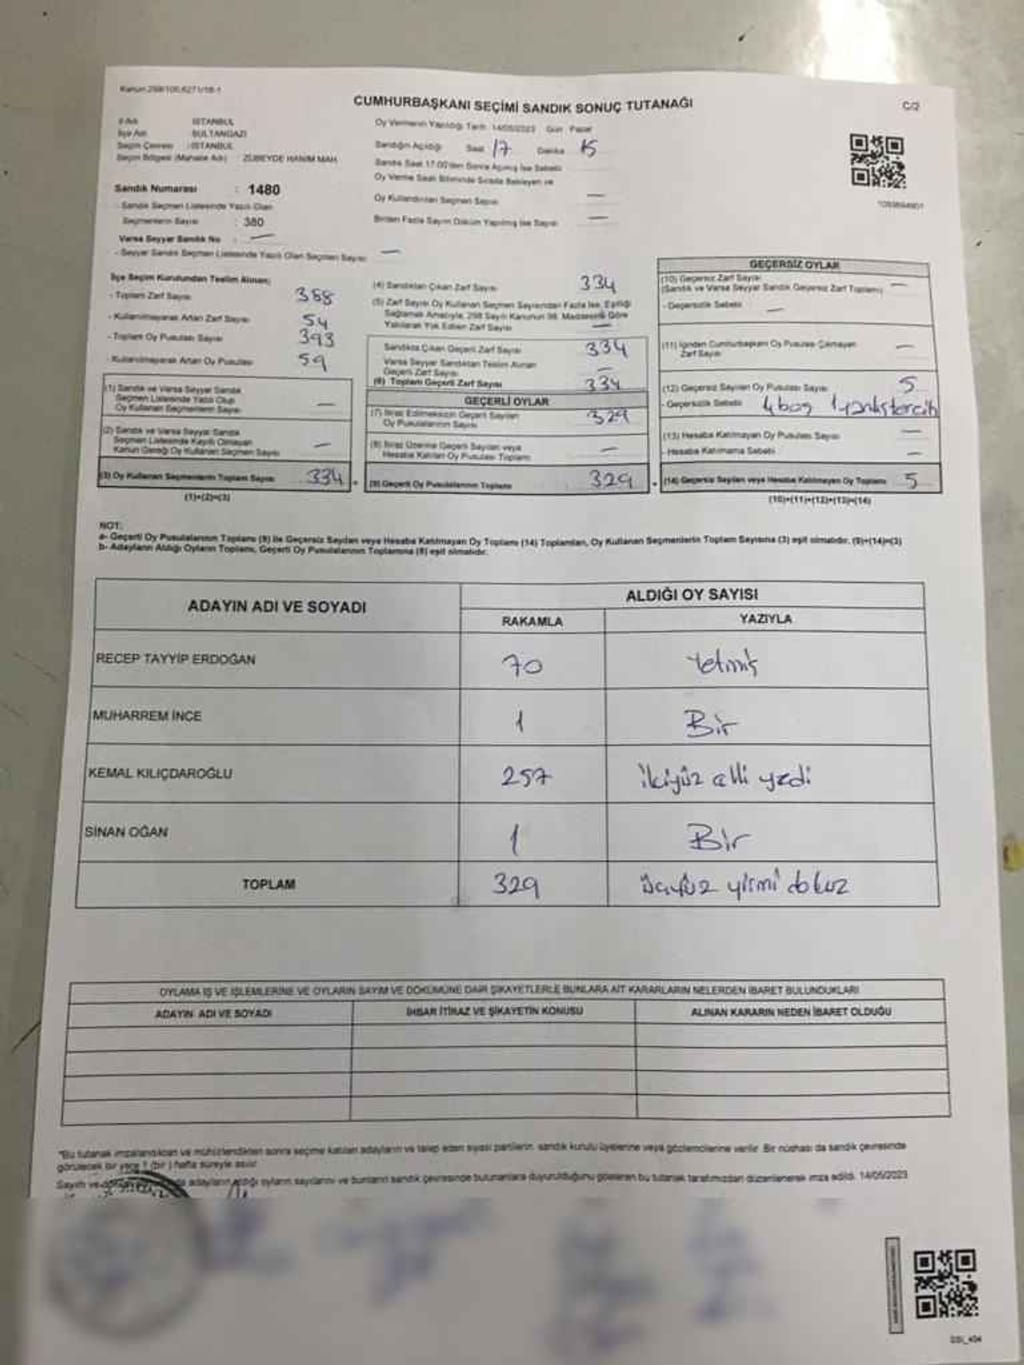 Kanun:298/106,6271/18-1
CUMHURBAŞKANI SEÇİMİ SANDIK SONUÇ TUTANAĞI
C/2
İl Adı : İSTANBUL
İlçe Adı : SULTANGAZİ
Seçim Çevresi : İSTANBUL
Seçim Bölgesi (Mahalle Adı) : ZÜBEYDE HANIM MAH.
Sandık Numarası : 1480
- Sandık Seçmen Listesinde Yazılı Olan
Seçmenlerin Sayısı : 380
Varsa Seyyar Sandık No : —
- Seyyar Sandık Seçmen Listesinde Yazılı Olan Seçmen Sayısı —
Oy Vermenin Yapıldığı Tarih: 14/05/2023 Gün: Pazar
Sandığın Açıldığı Saat 17 Dakika 15
Sandık Saat 17:00'den Sonra Açılmış İse Sebebi
Oy Verme Saati Bitiminde Sırada Bekleyen ve
Oy Kullandırılan Seçmen Sayısı —
Birden Fazla Sayım Döküm Yapılmış İse Sayısı —
İlçe Seçim Kurulundan Teslim Alınan;
- Toplam Zarf Sayısı 388
- Kullanılmayarak Artan Zarf Sayısı 54
- Toplam Oy Pusulası Sayısı 393
- Kullanılmayarak Artan Oy Pusulası 59
(1) Sandık ve Varsa Seyyar Sandık
Seçmen Listesinde Yazılı Olup
Oy Kullanan Seçmenlerin Sayısı —
(2) Sandık ve Varsa Seyyar Sandık
Seçmen Listesinde Kayıtlı Olmayan
Kanun Gereği Oy Kullanan Seçmen Sayısı —
(3) Oy Kullanan Seçmenlerin Toplam Sayısı 334
(1)+(2)=(3)
(4) Sandıktan Çıkan Zarf Sayısı 334
(5) Zarf Sayısı Oy Kullanan Seçmen Sayısından Fazla İse, Eşitliği
Sağlamak Amacıyla, 298 Sayılı Kanunun 98. Maddesine Göre
Yakılarak Yok Edilen Zarf Sayısı —
Sandıkta Çıkan Geçerli Zarf Sayısı 334
Varsa Seyyar Sandıktan Teslim Alınan
Geçerli Zarf Sayısı —
(6) Toplam Geçerli Zarf Sayısı 334
GEÇERLİ OYLAR
(7) İtiraz Edilmeksizin Geçerli Sayılan
Oy Pusulalarının Sayısı 329
(8) İtiraz Üzerine Geçerli Sayılan veya
Hesaba Katılan Oy Pusulası Toplamı —
(9) Geçerli Oy Pusulalarının Toplamı 329
GEÇERSİZ OYLAR
(10) Geçersiz Zarf Sayısı
(Sandık ve Varsa Seyyar Sandık Geçersiz Zarf Toplamı) —
- Geçersizlik Sebebi —
(11) İçinden Cumhurbaşkanı Oy Pusulası Çıkmayan
Zarf Sayısı —
(12) Geçersiz Sayılan Oy Pusulası Sayısı 5
- Geçersizlik Sebebi 4 boş 1 yanlış tercih
(13) Hesaba Katılmayan Oy Pusulası Sayısı —
- Hesaba Katılmama Sebebi —
(14) Geçersiz Sayılan veya Hesaba Katılmayan Oy Toplamı 5
(10)+(11)+(12)+(13)=(14)
NOT:
a- Geçerli Oy Pusulalarının Toplamı (9) ile Geçersiz Sayılan veya Hesaba Katılmayan Oy Toplamı (14) Toplamları, Oy Kullanan Seçmenlerin Toplam Sayısına (3) eşit olmalıdır. (9)+(14)=(3)
b- Adayların Aldığı Oyların Toplamı, Geçerli Oy Pusulalarının Toplamına (9) eşit olmalıdır.
ADAYIN ADI VE SOYADI
ALDIĞI OY SAYISI
RAKAMLA YAZIYLA
RECEP TAYYİP ERDOĞAN 70 Yetmiş
MUHARREM İNCE 1 Bir
KEMAL KILIÇDAROĞLU 257 ikiyüz elli yedi
SİNAN OĞAN 1 Bir
TOPLAM 329 üçyüz yirmi dokuz
OYLAMA İŞ VE İŞLEMLERİNE VE OYLARIN SAYIM VE DÖKÜMÜNE DAİR ŞİKAYETLERLE BUNLARA AİT KARARLARIN NELERDEN İBARET BULUNDUKLARI
ADAYIN ADI VE SOYADI İHBAR İTİRAZ VE ŞİKAYETİN KONUSU ALINAN KARARIN NEDEN İBARET OLDUĞU
*Bu tutanak imzalandıktan ve mühürlendikten sonra seçime katılan adayların ve talep eden siyasi partilerin sandık kurulu üyelerine veya gözlemcilerine verilir. Bir nüshası da sandık çevresinde
görülecek bir yere 1 (bir) hafta süreyle asılır.
Sayım ve adayların aldığı oyların sayılarını ve bunların sandık çevresinde bulunanlara duyurulduğunu gösteren bu tutanak tarafımızdan düzenlenerek imza edildi. 14/05/2023